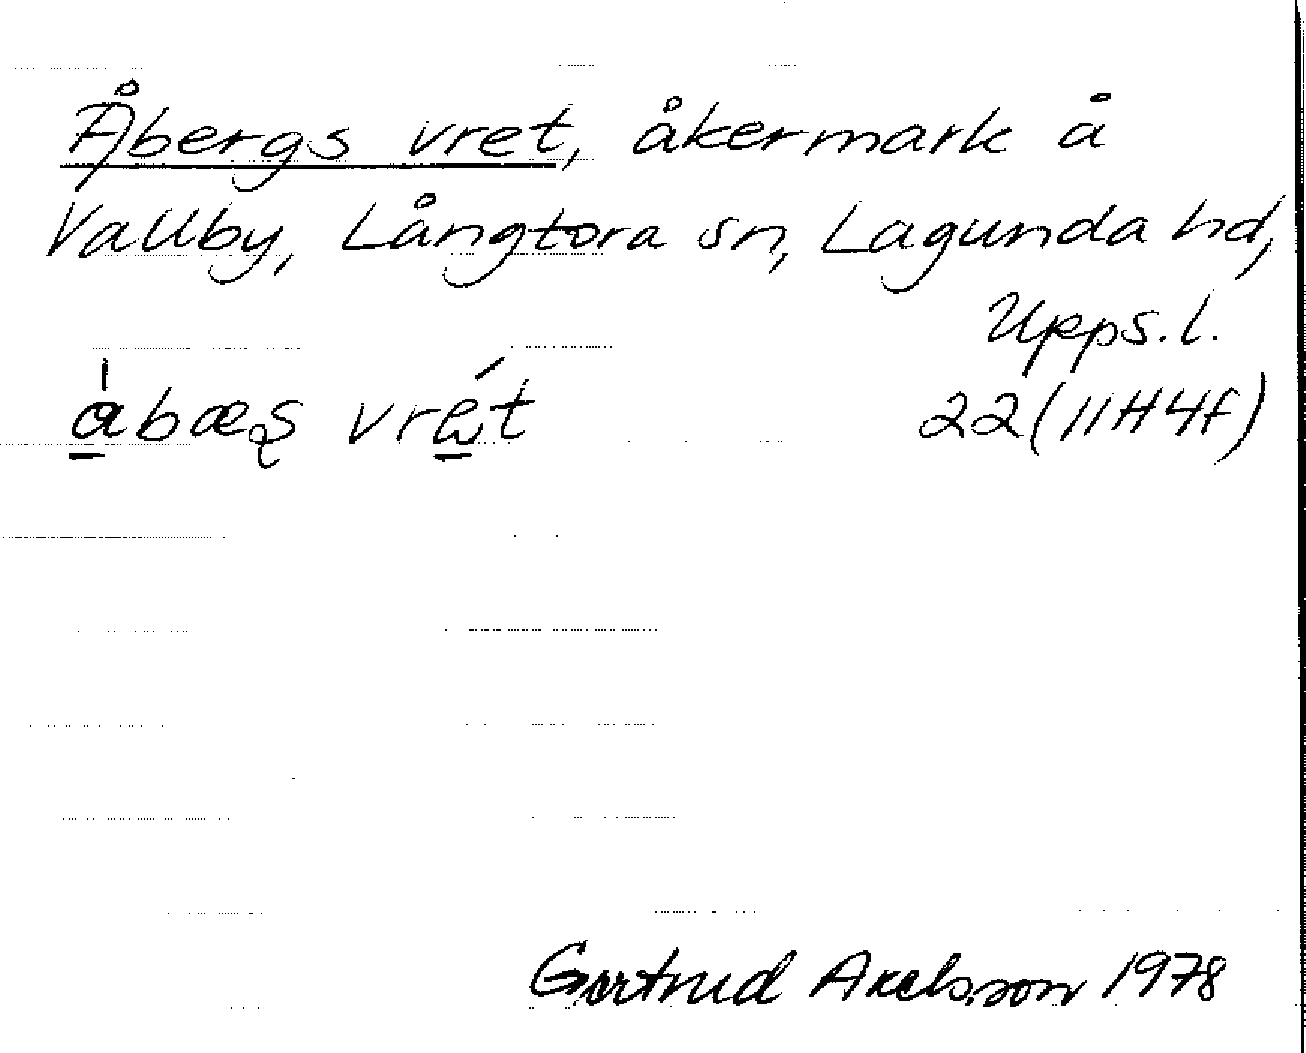 Åbergs vret, åkermark å
Vallby, Långtora sn, Lagunda hd,
Upps. l.
åbæs vrét 22 (11H4f)
Gertrud Axelsson 1978